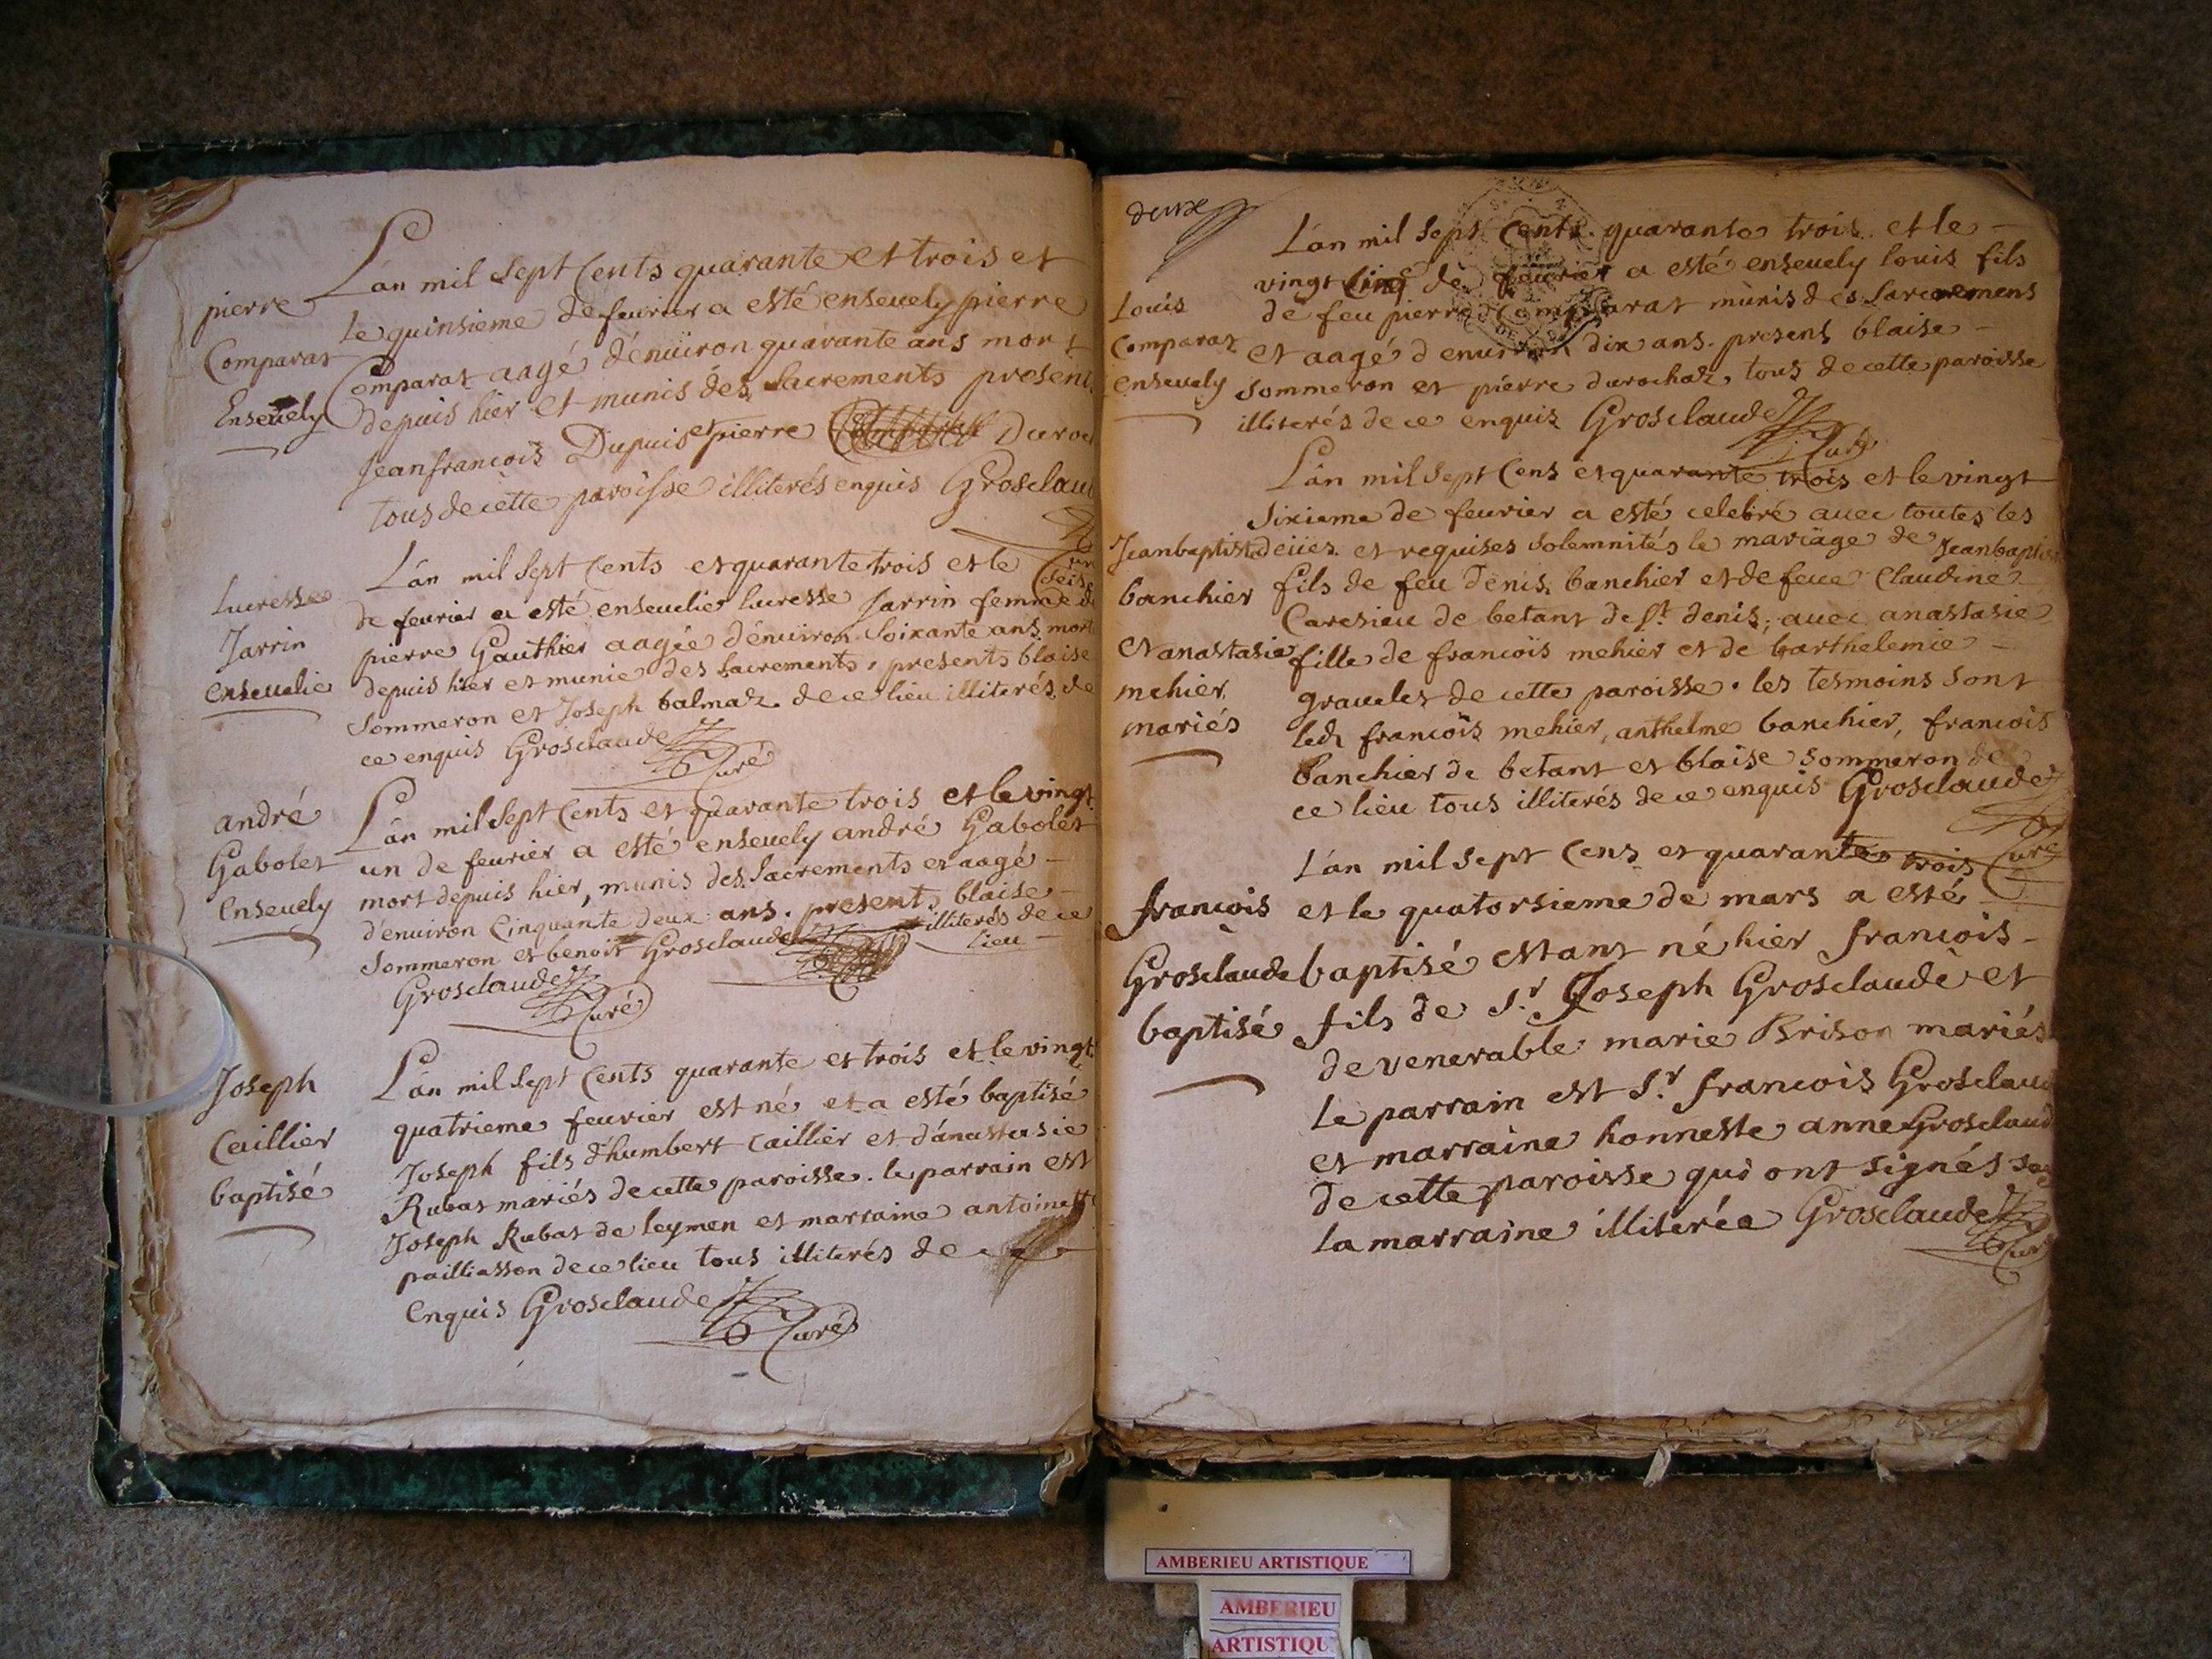 pierre
Comparat
Ensevely
L'an mil sept Cents quarante et trois et
le quinsieme de feuvrier a esté ensevely pierre
Comparat aagé d'environ quarante ans mort
depuis hier et munis des Sacrements present
Jeanfrancois Dupuis et pierre Duroc
tous de cette paroisse illiterés enquis Grosclau
Lucresse
Jarrin
ensevelie
L'an mil sept Cents et quarante trois et le seise
de feuvrier a esté ensevelie lucresse Jarrin femme de
pierre Gauthier aagée d'environ soixante ans mort
depuis hier et munie des sacrements, presents blaise
Sommeron et Joseph balmaz de ce lieu illiterés de
ce enquis Grosclaude
Curé
andré
Gabolet
ensevely
L'an mil sept Cents et quarante trois et le vingt
un de feuvrier a esté ensevely andré Gabolet
mort depuis hier, munis des Sacrements et aagé
d'environ Cinquante deux ans. presents blaise
Sommeron et benoit Grosclaude illiterés de ce
lieu
Grosclaude
Curé
Joseph
Caillier
baptisé
L'an mil sept Cents quarante et trois et le vingt
quatrieme feuvrier est né et a esté baptisé
Joseph fils d'humbert Caillier et d'anastasie
Rubat mariés de cette paroisse. le parrain est
Joseph Rubat de leymen et marraine antoinett
pailliasson de ce lieu tous illiterés de ce
enquis Grosclaude
Curé
deux
Louis
Comparat
ensevely
L'an mil sept Cents quarante trois et le
vingt Cinq de feuvrier a esté ensevely louis fils
de feu pierre Comparat munis des Sacremens
et aagé d'environ dix ans. presens blaise
Sommeron et pierre durochat, tous de cette paroisse
illiterés de ce enquis Grosclaude
Curé
Jeanbaptiste
banchier
et anastasie
mehier
mariés
L'an mil sept Cens et quarante trois et le vingt
sixieme de feuvrier a esté celebré avec toutes les
deües et requises solemnités le mariage de Jeanbaptis
fils de feu denis banchier et de feue Claudine
Caresieu de betant de St. denis, avec anastasie
fille de françois mehier et de barthelemie
gravelet de cette paroisse. les tesmoins sont
led françois mehier, anthelme banchier, francois
banchier de betant et blaise sommeron de
ce lieu tous illiterés de ce enquis Grosclaude
Curé
françois
Grosclaude
baptisé
L'an mil sept Cens et quarante trois
et le quatorsieme de mars a esté
baptisé estant né hier françois
fils de Sr. Joseph Grosclaude et
de venerable marie Brison mariés
le parrain est Sr. francois Grosclaud
et marraine honneste anne Grosclaud
de cette paroisse qui ont signés
la marraine illiterée Grosclaude
Curé
AMBERIEU ARTISTIQUE
AMBERIEU
ARTISTIQU